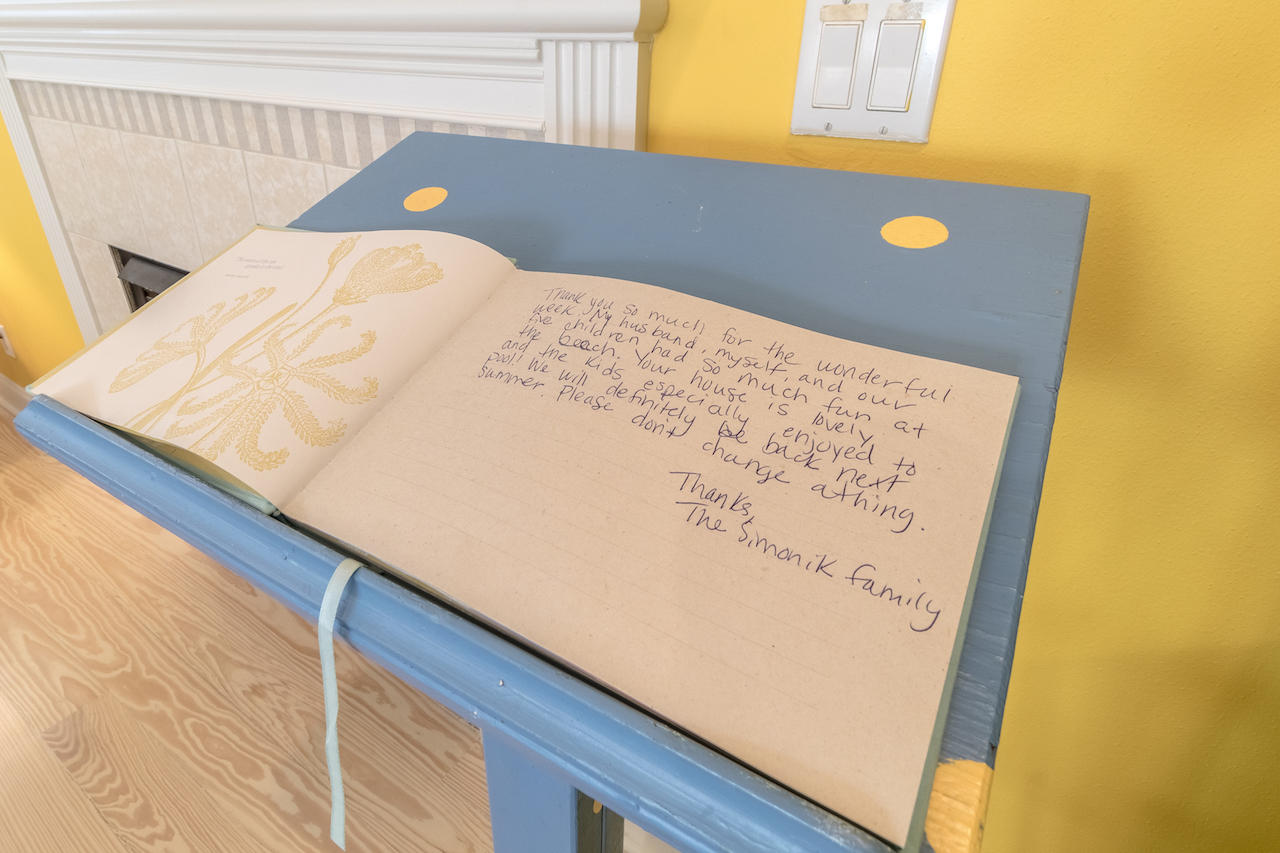 Thank you so much for the wonderful
week. My husband, myself, and our
five children had so much fun at
the beach. Your house is lovely
and the kids especially enjoyed to
pool! We will definitely be back next
summer. Please don't change a thing.
Thanks,
The Simonik family